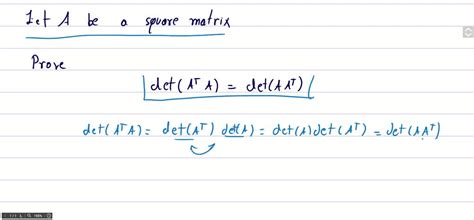 Let A be a square matrix
Prove
det(Aᵀ A) = det(A Aᵀ)
det(AᵀA) = det(Aᵀ) det(A) = det(A) det(Aᵀ) = det(AAᵀ)